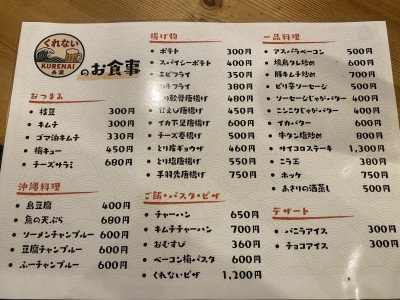 くれない
KURENAI
のお食事
おつまみ
枝豆 300円
キムチ 300円
ゴマ油キムチ 330円
梅キュー 450円
チーズサラミ 680円
沖縄料理
島豆腐 400円
魚の天ぷら 680円
ソーメンチャンプルー 600円
豆腐チャンプルー 600円
ふーチャンプルー 600円
揚げ物
ポテト 300円
スパイシーポテト 400円
エビフライ 350円
カキフライ 380円
軟骨唐揚げ 480円
唐揚げ 450円
イカ下足唐揚げ 600円
チーズ春巻 500円
とり皮ギョウザ 460円
とり塩唐揚げ 550円
手羽先唐揚げ 550円
ご飯・パスタ・ピザ
チャーハン 650円
キムチチャーハン 700円
おむすび 360円
ベーコン梅パスタ 600円
くれないピザ 1,200円
一品料理
アスパラベーコン 500円
焼鳥タレ炒め 600円
豚キムチ炒め 700円
ピリ辛ソーセージ 500円
ソーセージじゃがバター 400円
ニンニクじゃがバター 400円
イカバター 600円
牛タン塩炒め 800円
サイコロステーキ 1,300円
ニラ玉 380円
ホッケ 750円
あさりの酒蒸し 500円
デザート
バニラアイス 300円
チョコアイス 300円